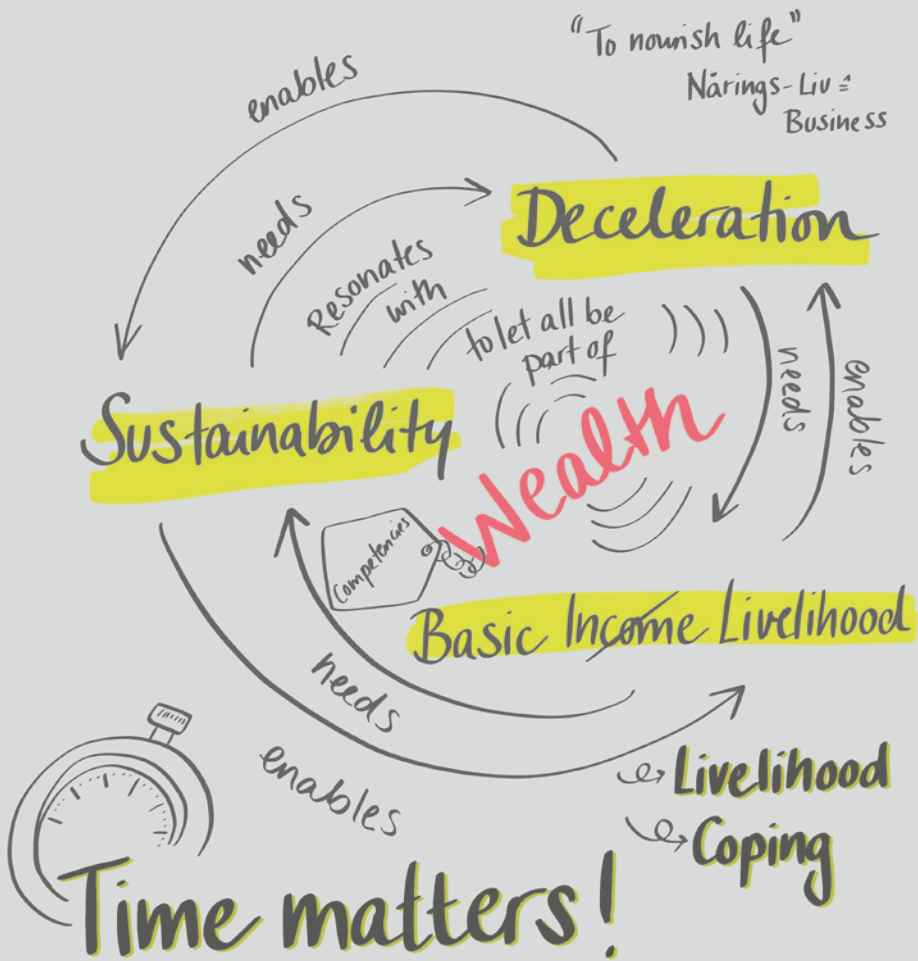 "To nourish life"
Nårings-Liv ≙
Business
enables
needs
Deceleration
Resonates
with
to let all be
part of
needs
enables
Sustainability
Wealth
Competencies
Basic Income Livelihood
needs
enables
Livelihood
Coping
Time matters!